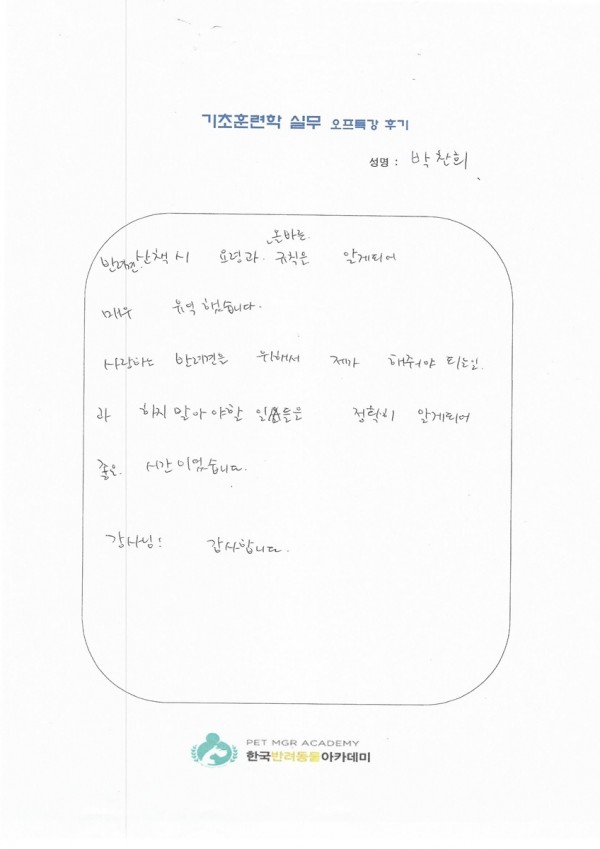 기초훈련학 실무 오프특강 후기
성명 : 박찬희
온바른
반려견 산책시 요령과 규칙은 알게되어
매우 유익했습니다.
사랑하는 반려견을 위해서 제가 해주어야 되는일
과 하지말아야할 일들을 정확히 알게되어
좋은 시간이였습니다.
강사님! 감사합니다.
PET MGR ACADEMY
한국반려동물아카데미